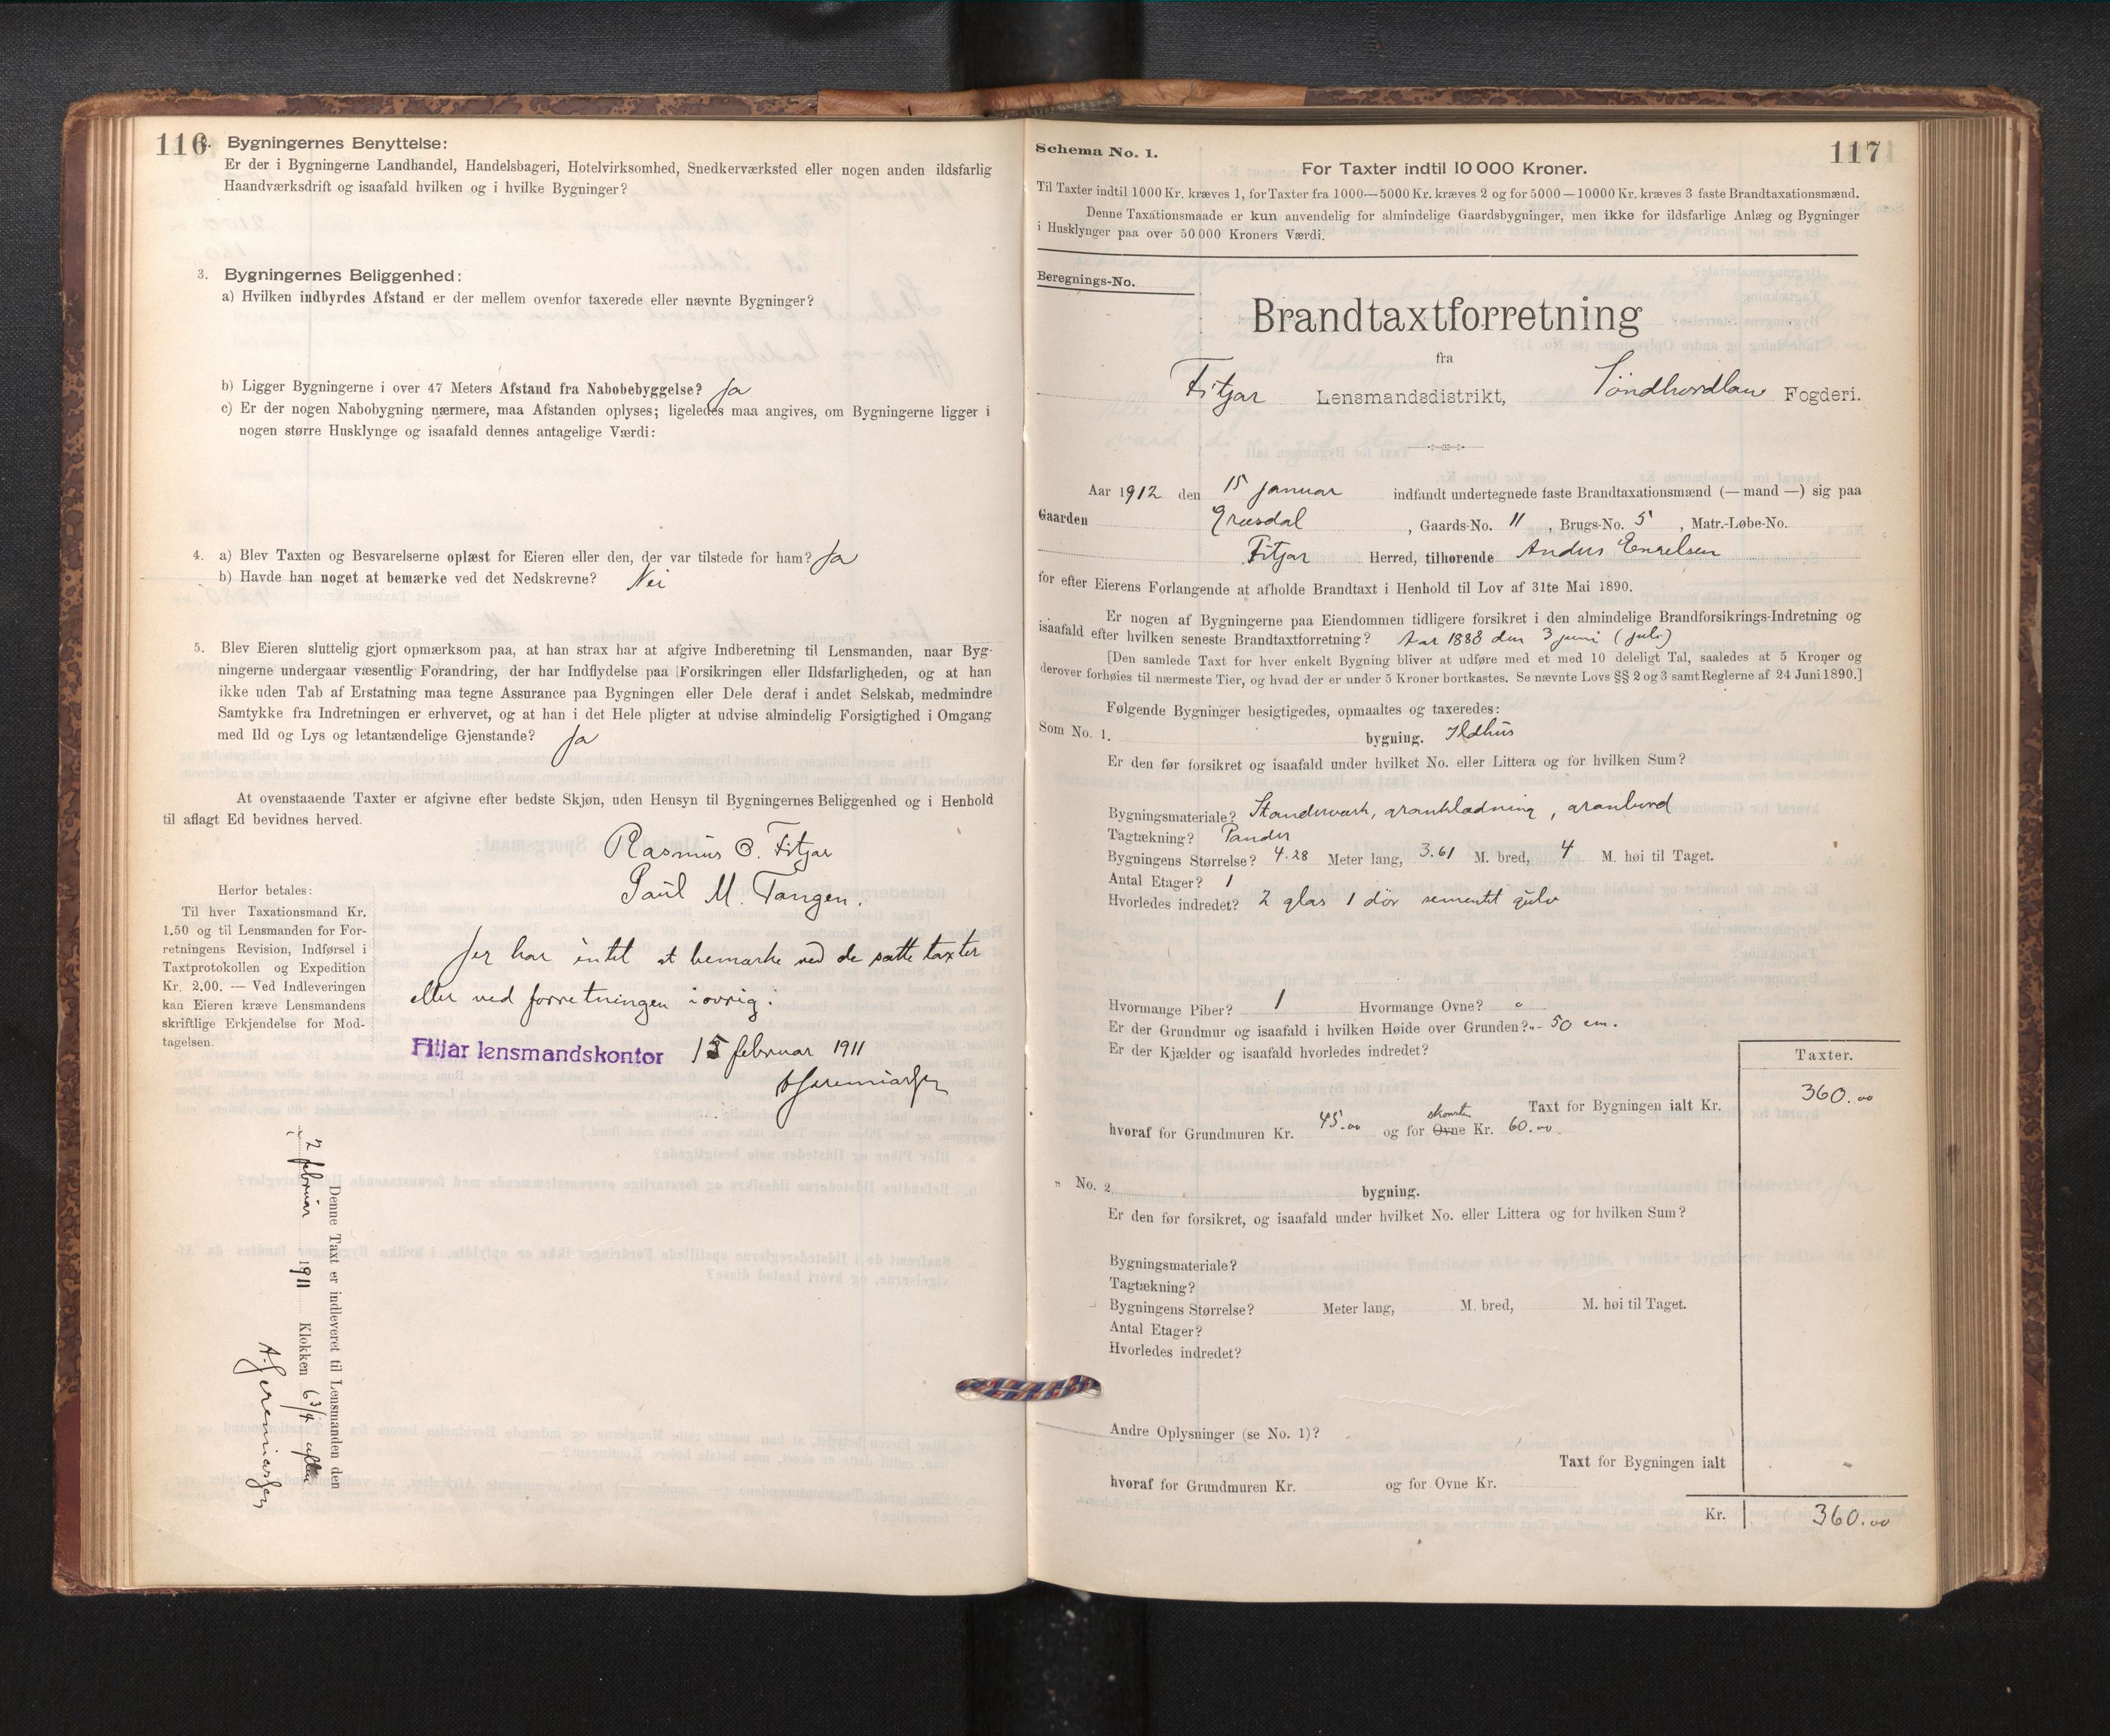 116
2. Bygningernes Benyttelse:
Er der i Bygningerne Landhandel, Handelsbageri, Hotelvirksomhed, Snedkerværksted eller nogen anden ildsfarlig
Haandværksdrift og isaafald hvilken og i hvilke Bygninger?
3. Bygningernes Beliggenhed:
a) Hvilken indbyrdes Afstand er der mellem ovenfor taxerede eller nævnte Bygninger?
b) Ligger Bygningerne i over 47 Meters Afstand fra Nabobebyggelse? Ja
c) Er der nogen Nabobygning nærmere, maa Afstanden oplyses; ligeledes maa angives, om Bygningerne ligger i
nogen større Husklynge og isaafald dennes antagelige Værdi:
4. a) Blev Taxten og Besvarelserne oplæst for Eieren eller den, der var tilstede for ham? Ja
b) Havde han noget at bemærke ved det Nedskrevne? Nei
5. Blev Eieren sluttelig gjort opmærksom paa, at han strax har at afgive Indberetning til Lensmanden, naar Byg-
ningerne undergaar væsentlig Forandring, der har Indflydelse paa Forsikringen eller Ildsfarligheden, og at han
ikke uden Tab af Erstatning maa tegne Assurance paa Bygningen eller Dele deraf i andet Selskab, medmindre
Samtykke fra Indretningen er erhvervet, og at han i det Hele pligter at udvise almindelig Forsigtighed i Omgang
med Ild og Lys og letantændelige Gjenstande? Ja
At ovenstaaende Taxter er afgivne efter bedste Skjøn, uden Hensyn til Bygningernes Beliggenhed og i Henhold
til aflagt Ed bevidnes herved.
Rasmus O. Fitjar
Paul M. Tangen.
Herfor betales:
Til hver Taxationsmand Kr.
1.50 og til Lensmanden for For-
retningens Revision, Indførsel i
Taxtprotokollen og Expedition
Kr. 2.00. — Ved Indleveringen
kan Eieren kræve Lensmandens
skriftlige Erkjendelse for Mod-
tagelsen.
Jeg har intet at bemærke ved de satte taxter
eller ved forretningen iøvrig.
Fitjar lensmandskontor 15 februar 1911
A Jeremiassen
Denne Taxt er indleveret til Lensmanden den
2 februar 1911 Klokken 6 3/4 aften
A. Jeremiassen
117
Schema No. 1.
For Taxter indtil 10 000 Kroner.
Til Taxter indtil 1000 Kr. kræves 1, for Taxter fra 1000—5000 Kr. kræves 2 og for 5000—10000 Kr. kræves 3 faste Brandtaxationsmænd.
Denne Taxationsmaade er kun anvendelig for almindelige Gaardsbygninger, men ikke for ildsfarlige Anlæg og Bygninger
i Husklynger paa over 50 000 Kroners Værdi.
Beregnings-No.
Brandtaxtforretning
fra
Fitjar Lensmandsdistrikt, Søndhordland Fogderi.
Aar 1912 den 15 januar indfandt undertegnede faste Brandtaxationsmænd (— mand —) sig paa
Gaarden Græsdal, Gaards-No. 11, Brugs-No. 5, Matr.-Løbe-No.
Fitjar Herred, tilhørende Anders Engelsen
for efter Eierens Forlangende at afholde Brandtaxt i Henhold til Lov af 31te Mai 1890.
Er nogen af Bygningerne paa Eiendommen tidligere forsikret i den almindelige Brandforsikrings-Indretning og
isaafald efter hvilken seneste Brandtaxtforretning? Aar 1888 den 3 juni (juli)
[Den samlede Taxt for hver enkelt Bygning bliver at udføre med et med 10 deleligt Tal, saaledes at 5 Kroner og
derover forhøies til nærmeste Tier, og hvad der er under 5 Kroner bortkastes. Se nævnte Lovs §§ 2 og 3 samt Reglerne af 24 Juni 1890.]
Følgende Bygninger besigtigedes, opmaaltes og taxeredes:
Som No. 1. bygning. Ildhus
Er den før forsikret og isaafald under hvilket No. eller Littera og for hvilken Sum?
Bygningsmateriale? Standerværk,
Tagtækning? Pander
Bygningens Størrelse? 4.28 Meter lang, 3.61 M. bred, 4 M. høi til Taget.
Antal Etager? 1
Hvorledes indredet? 2 glas 1 dør sementet gulv
Hvormange Piber? 1 Hvormange Ovne? 0
Er der Grundmur og isaafald i hvilken Høide over Grunden? 50 cm.
Er der Kjælder og isaafald hvorledes indredet?
Taxter.
Taxt for Bygningen ialt Kr. 360.00
skorsten
hvoraf for Grundmuren Kr. 45.00 og for Ovne Kr. 60.00
" No. 2 bygning.
Er den før forsikret, og isaafald under hvilket No. eller Littera og for hvilken Sum?
Bygningsmateriale?
Tagtækning?
Bygningens Størrelse? Meter lang, M. bred, M. høi til Taget.
Antal Etager?
Hvorledes indredet?
Andre Oplysninger (se No. 1)?
Taxt for Bygningen ialt
hvoraf for Grundmuren Kr. og for Ovne Kr.
Kr. 360.00